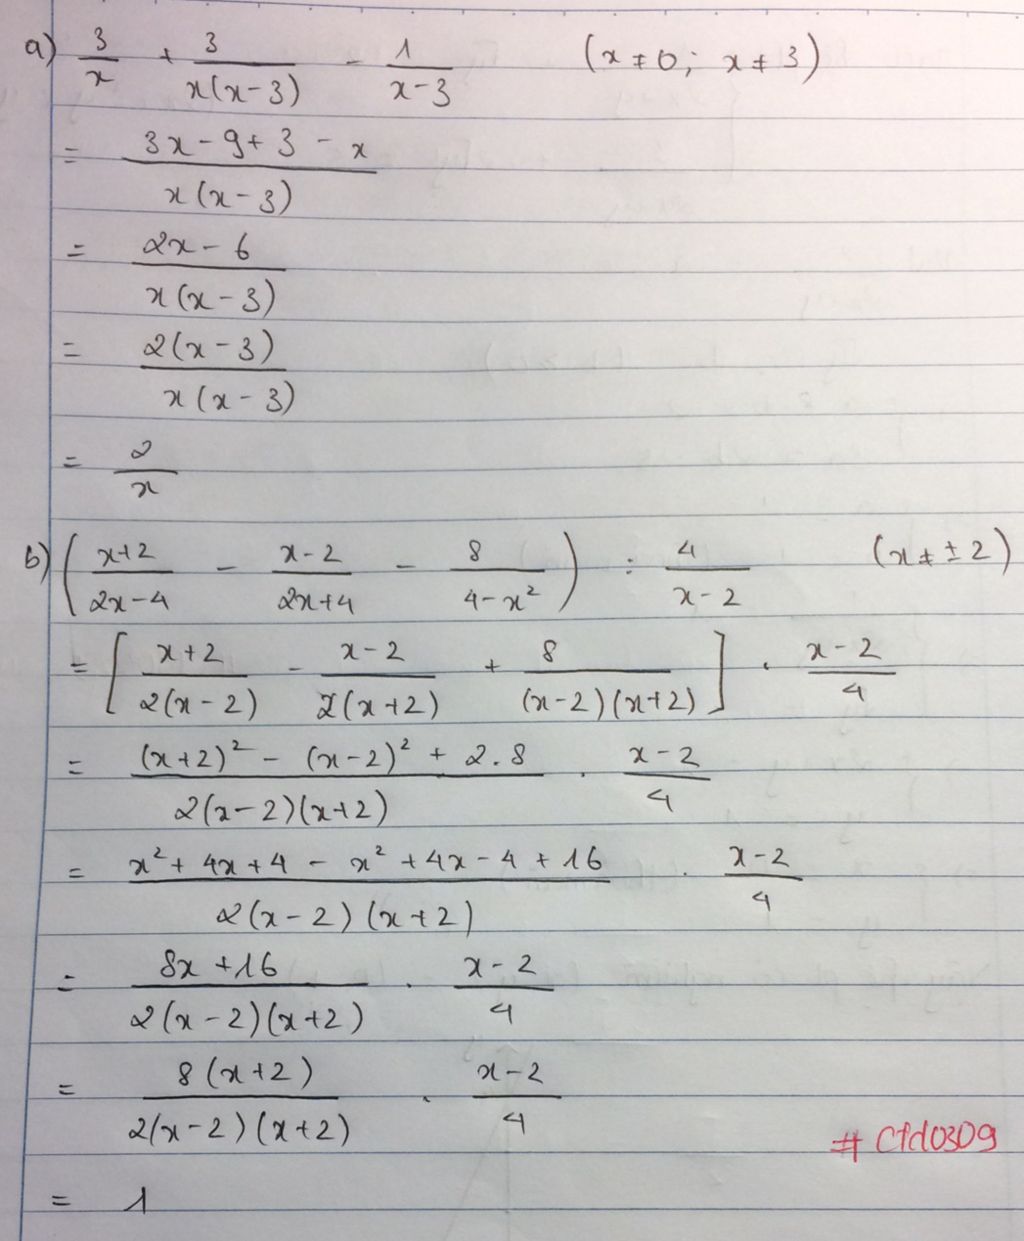 a) 3/x + 3/x(x-3) - 1/x-3 (x ≠ 0; x ≠ 3)
= 3x - 9 + 3 - x / x(x-3)
= 2x - 6 / x(x-3)
= 2(x-3) / x(x-3)
= 2/x
b) (x+2/2x-4 - x-2/2x+4 - 8/4-x²) : 4/x-2 (x ≠ ±2)
= [x+2/2(x-2) - x-2/2(x+2) + 8/(x-2)(x+2)] . x-2/4
= (x+2)² - (x-2)² + 2.8 / 2(x-2)(x+2) . x-2/4
= x² + 4x + 4 - x² + 4x - 4 + 16 / 2(x-2)(x+2) . x-2/4
= 8x + 16 / 2(x-2)(x+2) . x-2/4
= 8(x+2) / 2(x-2)(x+2) . x-2/4
# Ctd0309
= 1